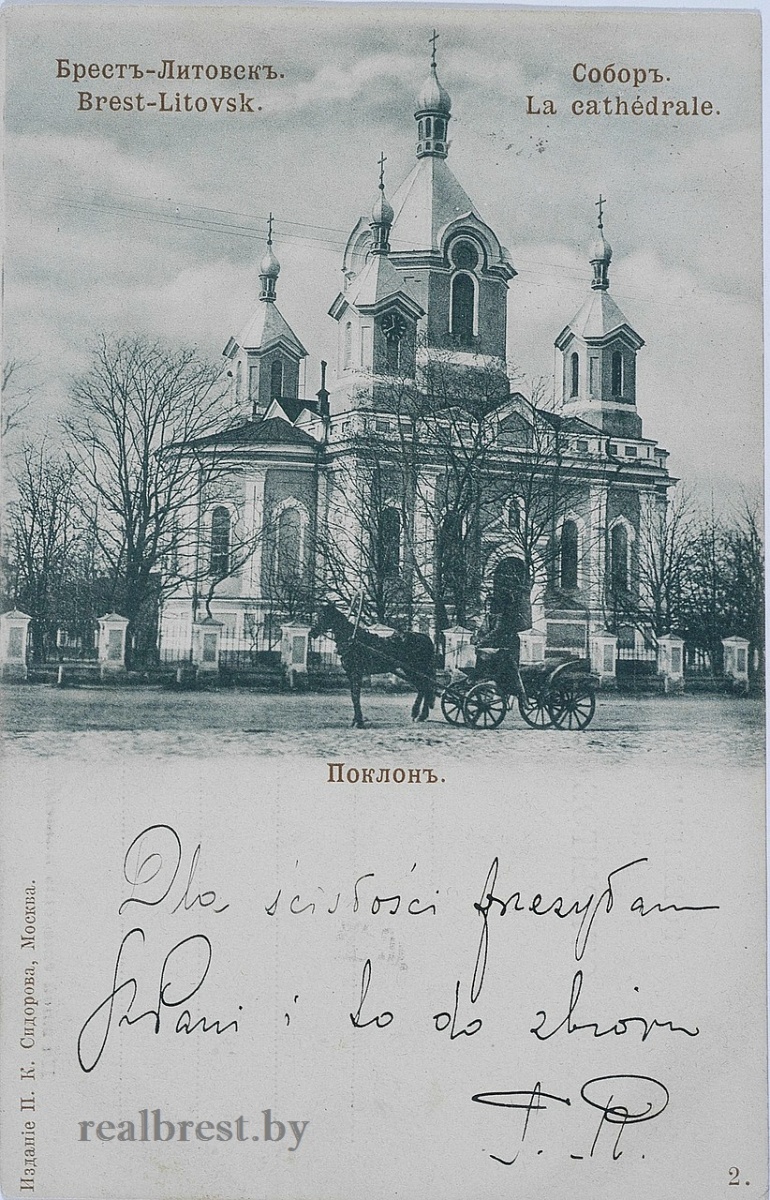 Брестъ-Литовскъ.
Brest-Litovsk.
Соборъ.
La cathédrale.
Поклонъ.
Dla ścisłości przesyłam
Pani i to do zbioru
Изданіе П. К. Сидорова, Москва.
realbrest.by
2.